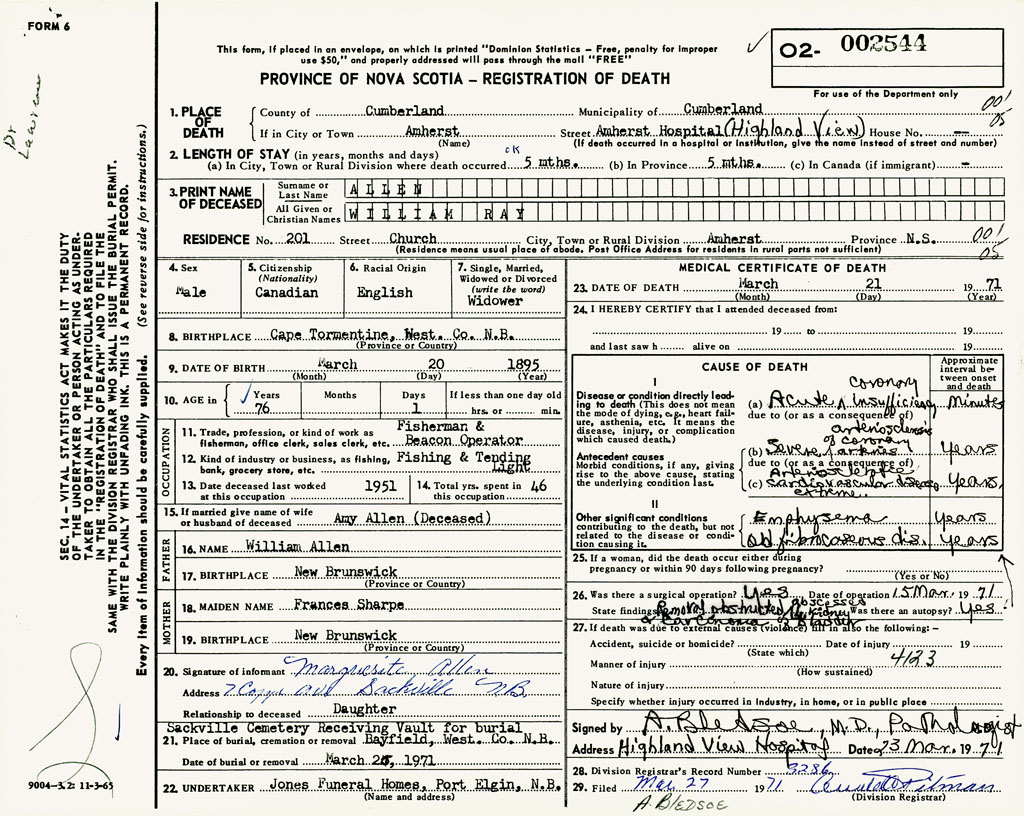 FORM 6
Dr Lawrence
This form, if placed in an envelope, on which is printed "Dominion Statistics – Free, penalty for improper
use $50," and properly addressed will pass through the mail "FREE"
✓ 02- 002544
For use of the Department only
PROVINCE OF NOVA SCOTIA – REGISTRATION OF DEATH
SEC. 14 – VITAL STATISTICS ACT MAKES IT THE DUTY
OF THE UNDERTAKER OR PERSON ACTING AS UNDER-
TAKER TO OBTAIN ALL THE PARTICULARS REQUIRED
IN THE "REGISTRATION OF DEATH" AND TO FILE THE
SAME WITH THE DIVISION REGISTRAR WHO SHALL ISSUE THE BURIAL PERMIT.
WRITE PLAINLY WITH UNFADING INK. THIS IS A PERMANENT RECORD.
Every item of Information should be carefully supplied. (See reverse side for instructions.)
1. PLACE OF DEATH
County of Cumberland Municipality of Cumberland
001
05
If in City or Town Amherst Street Amherst Hospital (Highland View) House No. —
(Name) (If death occurred in a hospital or institution, give the name instead of street and number)
2. LENGTH OF STAY (in years, months and days) ck
(a) In City, Town or Rural Division where death occurred 5 mths. (b) In Province 5 mths. (c) In Canada (if immigrant) —
3. PRINT NAME OF DECEASED
Surname or Last Name ALLEN
All Given or Christian Names WILLIAM RAY
RESIDENCE No. 201 Street Church City, Town or Rural Division Amherst Province N.S. 001
05
(Residence means usual place of abode. Post Office Address for residents in rural parts not sufficient)
4. Sex
Male
5. Citizenship
(Nationality)
Canadian
6. Racial Origin
English
7. Single, Married,
Widowed or Divorced
(write the word)
Widower
8. BIRTHPLACE Cape Tormentine, West. Co. N.B.
(Province or Country)
9. DATE OF BIRTH March 20 1895
(Month) (Day) (Year)
10. AGE in ✓ Years 76 Months Days 1 If less than one day
hrs. or min.
OCCUPATION
11. Trade, profession, or kind of work as
fisherman, office clerk, sales clerk, etc. Fisherman &
Beacon Operator
12. Kind of industry or business, as fishing,
bank, grocery store, etc. Fishing & Tending
Light
13. Date deceased last worked
at this occupation 1951
14. Total yrs. spent in
this occupation 46
15. If married give name of wife
or husband of deceased Amy Allen (Deceased)
FATHER
16. NAME William Allen
17. BIRTHPLACE New Brunswick
(Province or Country)
MOTHER
18. MAIDEN NAME Frances Sharpe
19. BIRTHPLACE New Brunswick
(Province or Country)
20. Signature of informant Marguerite Allen
Address 7 Ave Sackville N.B.
Relationship to deceased Daughter
Sackville Cemetery Receiving Vault for burial
21. Place of burial, cremation or removal Bayfield, West. Co. N.B.
Date of burial or removal March 1971
22. UNDERTAKER Jones Funeral Homes, Port Elgin, N.B.
(Name and address)
9004-3.2: 11-3-65
MEDICAL CERTIFICATE OF DEATH
23. DATE OF DEATH March 21 1971
(Month) (Day) (Year)
24. I HEREBY CERTIFY that I attended deceased from:
19 to 19
and last saw h alive on 19
CAUSE OF DEATH
Approximate
interval be-
tween onset
and death
I
Disease or condition directly lead-
ing to death (This does not mean
the mode of dying, e.g., heart fail-
ure, asthenia, etc. It means the
disease, injury, or complication
which caused death.)
coronary
(a) Acute insufficiency Minutes
due to (or as a consequence of)
Antecedent causes
Morbid conditions, if any, giving
rise to the above cause, stating
the underlying condition last.
arteriosclerosis
of coronary
(b) Severe Years
due to (or as a consequence of)
(c) cardiovascular disease Years,
extreme
II
Other significant conditions
contributing to the death, but not
related to the disease or condi-
tion causing it.
Emphysema Years
Old fibrocaseous dis. Years
25. If a woman, did the death occur either during
pregnancy or within 90 days following pregnancy?
(Yes or No)
26. Was there a surgical operation? Yes Date of operation 15 Mar. 1971
State findings Removal obstructed kidney abscesses Was there an autopsy? Yes
& carcinoma of Bladder
27. If death was due to external causes (violence) fill in also the following: –
Accident, suicide or homicide? Date of injury 19
(State which)
4123
Manner of injury
(How sustained)
Nature of injury
Specify whether injury occurred in industry, in home, or in public place
Signed by A. Bledsoe, M.D., Pathologist
Address Highland View Hospital Date 23 Mar. 1971
28. Division Registrar's Record Number 3286
29. Filed Mar 27 1971 Pitman
(Division Registrar)
A. BLEDSOE